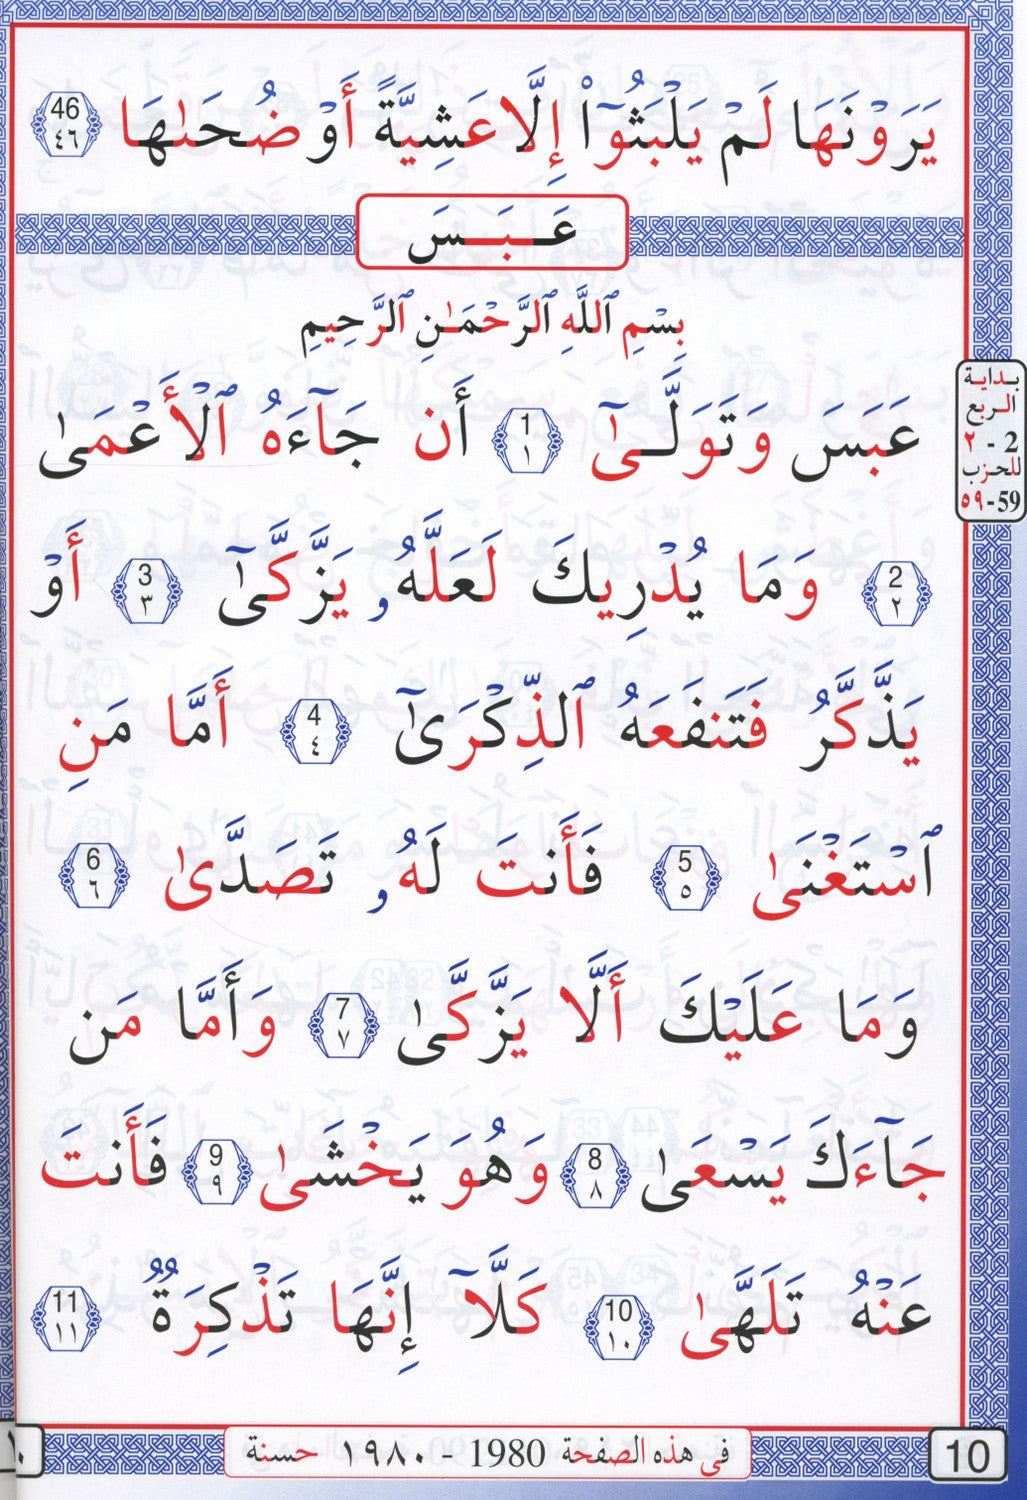 يَرَوْنَهَا لَمْ يَلْبَثُوٓاْ إِلَّا عَشِيَّةً أَوْ ضُحَىٰهَا 46 ٤٦
عَبَسَ
بِسْمِ ٱللَّهِ ٱلرَّحْمَـٰنِ ٱلرَّحِيمِ
عَبَسَ وَتَوَلَّىٰٓ 1 ١ أَن جَآءَهُ ٱلْأَعْمَىٰ
2 ٢ وَمَا يُدْرِيكَ لَعَلَّهُۥ يَزَّكَّىٰٓ 3 ٣ أَوْ
يَذَّكَّرُ فَتَنفَعَهُ ٱلذِّكْرَىٰٓ 4 ٤ أَمَّا مَنِ
ٱسْتَغْنَىٰ 5 ٥ فَأَنتَ لَهُۥ تَصَدَّىٰ 6 ٦
وَمَا عَلَيْكَ أَلَّا يَزَّكَّىٰ 7 ٧ وَأَمَّا مَن
جَآءَكَ يَسْعَىٰ 8 ٨ وَهُوَ يَخْشَىٰ 9 ٩ فَأَنتَ
عَنْهُ تَلَهَّىٰ 10 ١٠ كَلَّآ إِنَّهَا تَذْكِرَةٌ 11 ١١
بداية
الربع
2 - ٢
للحزب
59-٥٩
في هذه الصفحة 1980 - ١٩٨٠ حسنة
10